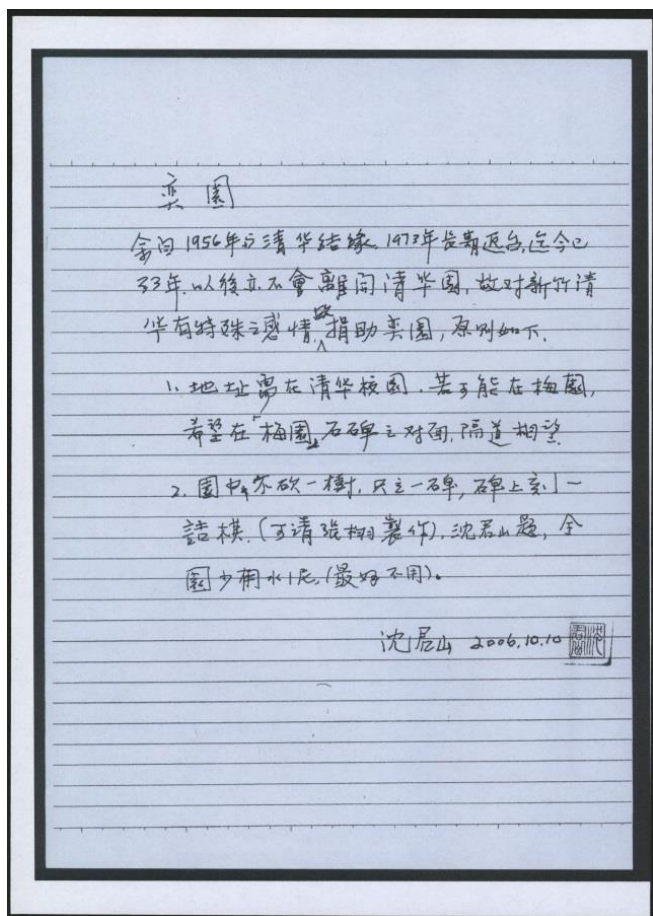 奕園
余自1956年与清华结緣,1973年長青返台,迄今已
33年,以後亦不會離開清华園,故对新竹清
华有特殊之感情,故捐助奕園,原則如下.
1. 地址需在清华校園.若可能在梅園,
希望在「梅園」石碑之对面,隔道相望
2. 園中不砍一樹,只立一碑,碑上刻一
詰棋.(可請張栩製作),沈君山題,全
園少用水泥,(最好不用)。
沈君山 2006.10.10